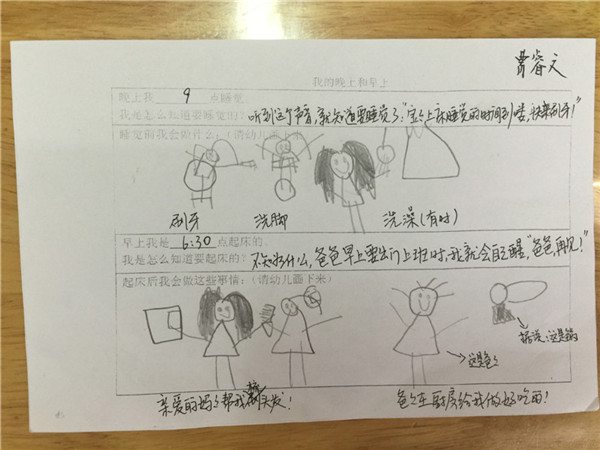 睿文
我的晚上和早上
晚上我 9 点睡觉.
我是怎么知道要睡觉的? 听到这个声音,就知道要睡觉了:“宝々上床睡觉的时间到喽,快来刷牙!”
睡觉前我会做什么:(请幼儿画下来)
刷牙 洗脚 洗澡(有时)
早上我是 6:30 点起床的.
我是怎么知道要起床的? 不知为什么,爸爸早上要出门上班时,我就会自己醒,“爸爸,再见!”
起床后我会做这些事情:(请幼儿画下来)
据说,这是
这是爸々
亲爱的妈々帮我梳头发!
爸々在厨房给我做好吃的!